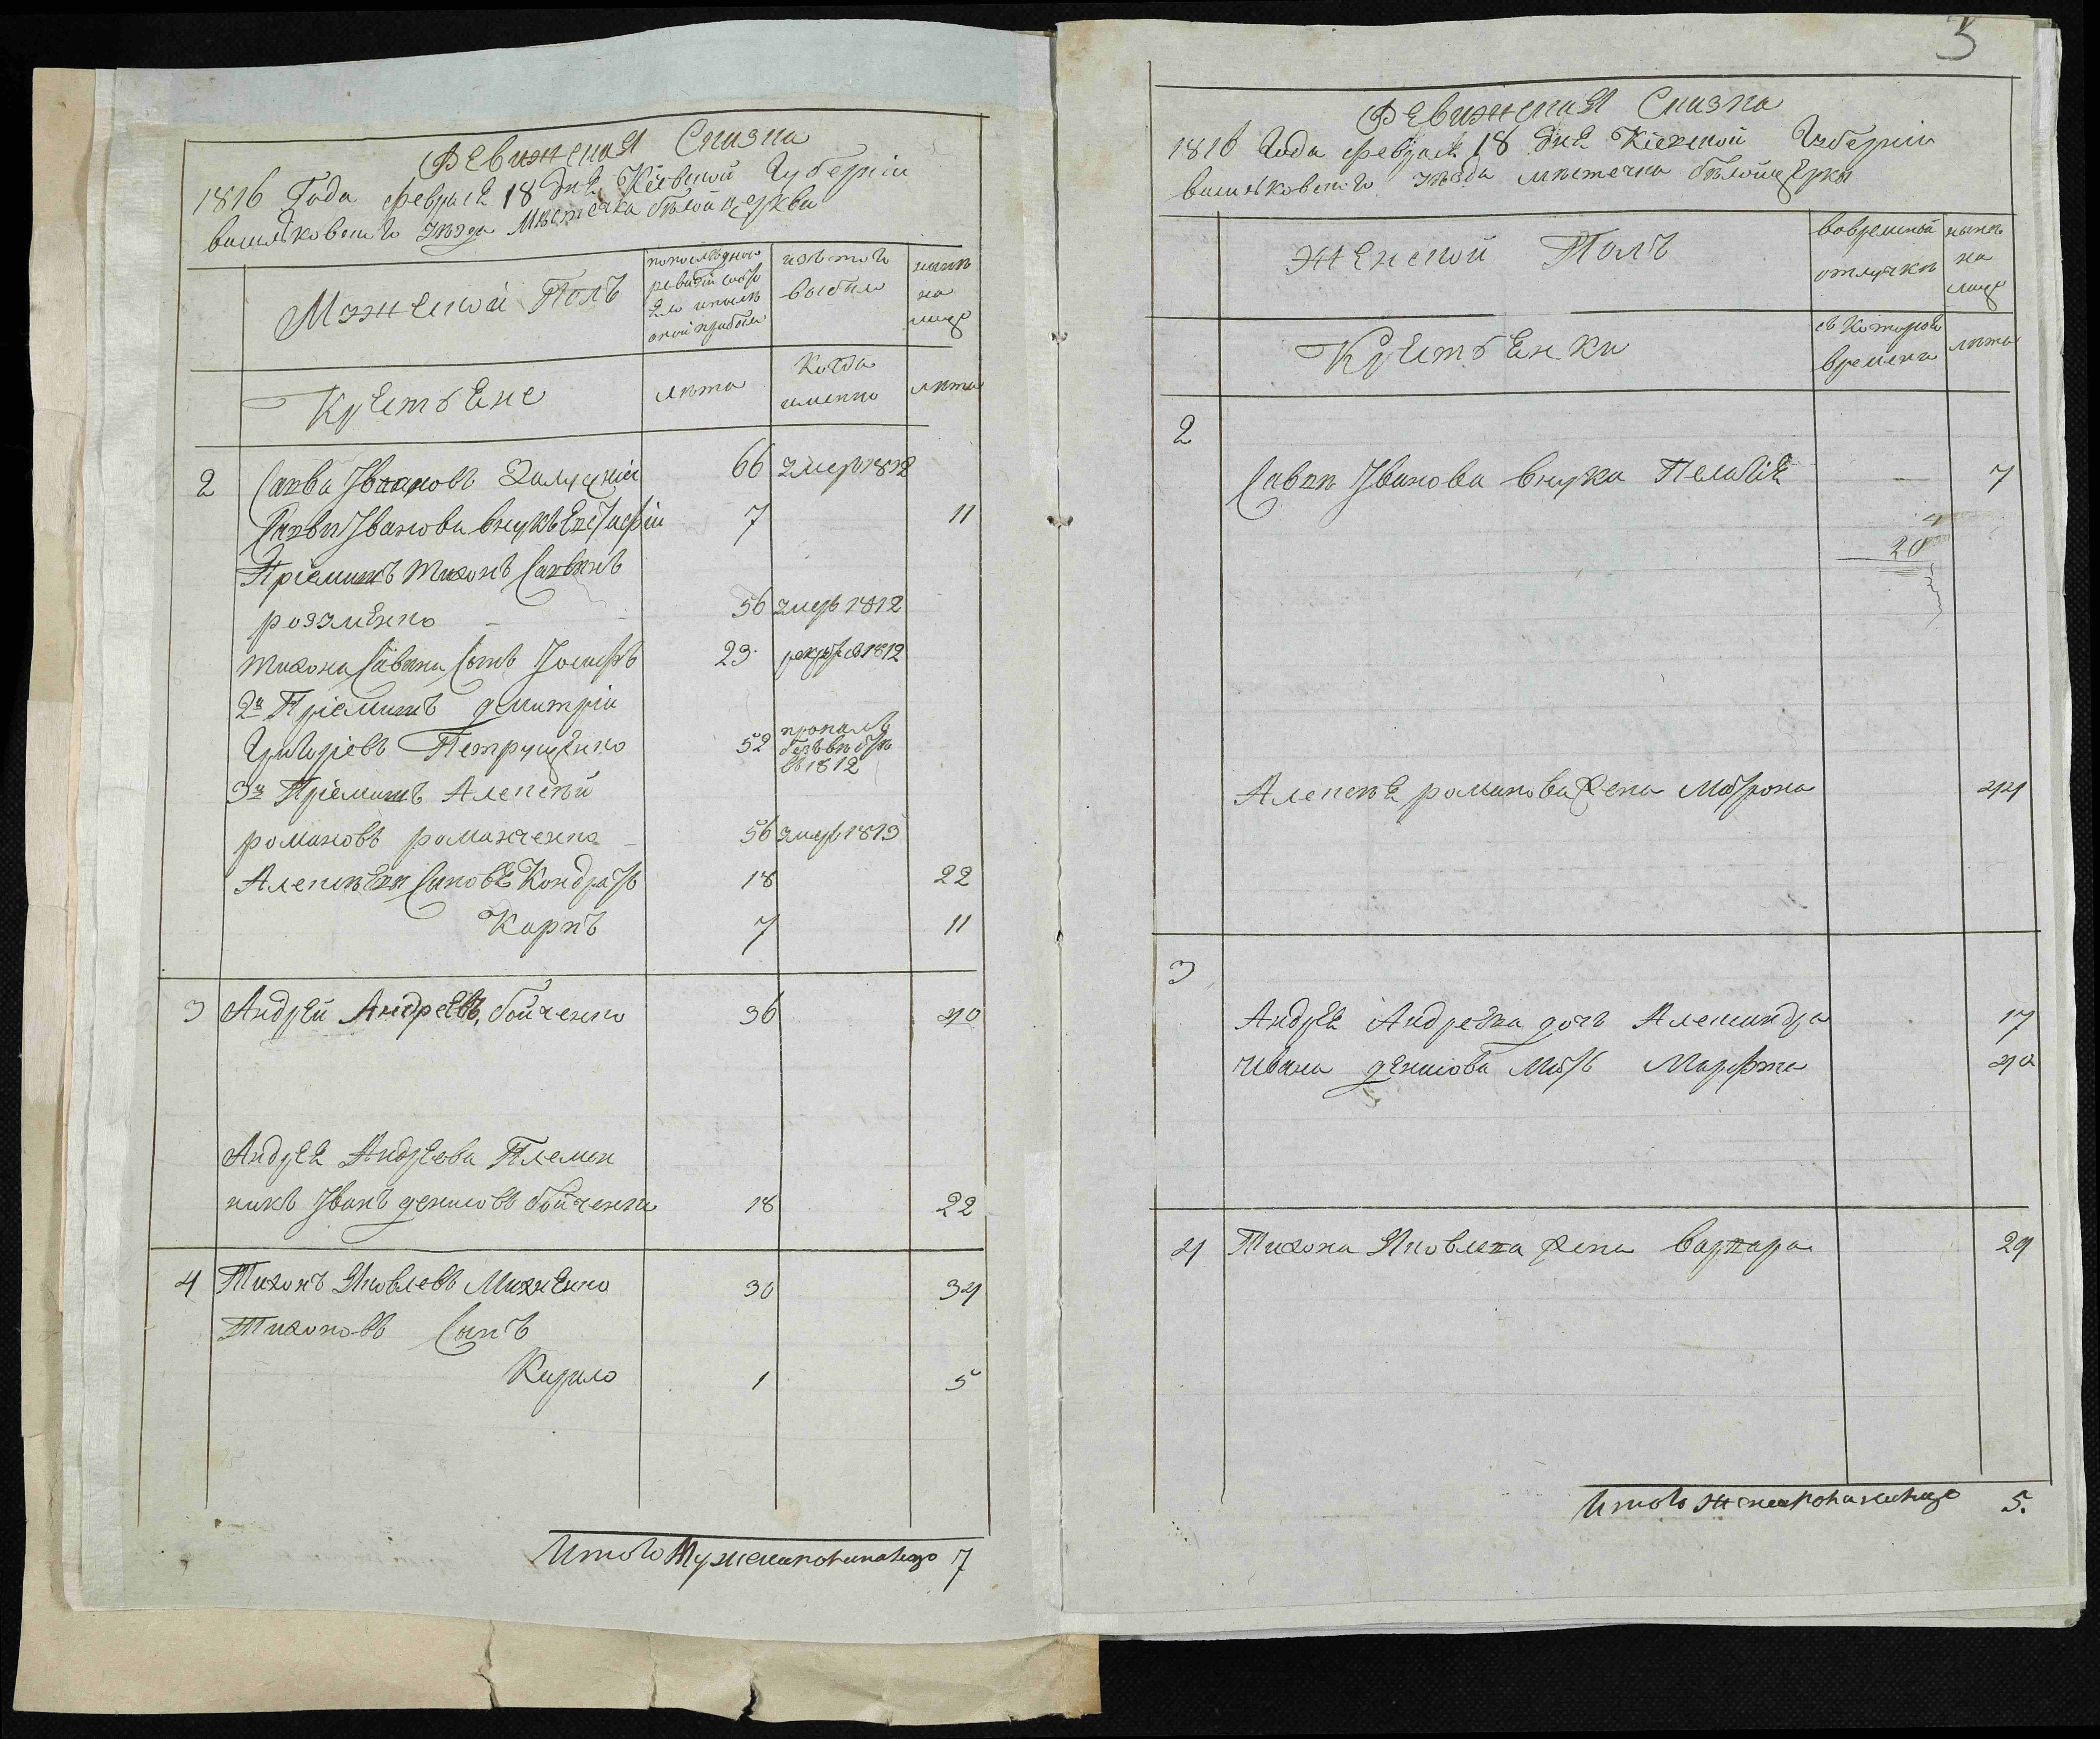 Ревижская Сказка
1816 Года февраля 18 дня Кіевской Губерніи
васильковского уезда Местечка белой церкви
Мужеской Полъ
по последней ревизіи состояло и после оной прибыло
изъ того выбыло
ныне на лицо
Крестьяне
лета
Когда именно
лета
2 Савва Ивановъ Залуский 66 умеръ 1812
Саввы Иванова внукъ Евстафій 7 11
Пріемышъ Тихонъ Саввинъ
розуменко 56 умеръ 1812
Тихона Савина Сынъ Іосифъ 23 рекрутъ в 1812
2й Пріемышъ дмитрій
Григоріевъ Петрущенко 52 пропалъ безъ вести въ 1812
3й Пріемышъ Алексей
романовъ романченко 56 умеръ 1813
Алексея Сыновья Кондратъ 18 22
Карпъ 7 11
3 Андрей Андреевъ бойченко 36 40
Андрея Андреева Племен
никъ Иванъ денисовъ бойченко 18 22
4 Тихонъ Яковлевъ Михненко 30 34
Тихоновъ Сынъ
Кирило 1 5
Итого Мужеска пола на лицо 7
3
Ревижская Сказка
1816 Года февраля 18 дня Кіевской Губерніи
васильковского уезда местечка белой церкви
Женской Полъ
во временной отлучке
ныне на лицо
Крестьянки
съ Которого времени
лета
2
Саввы Иванова внука Пелагія — 7
20
Алексея романова жена Матрона 44
3
Андрея Андреева дочь Александра 17
Ивана денисова Мать Марфа 40
4 Тихона Яковлева жена варвара 29
Итого женска пола на лицо 5.